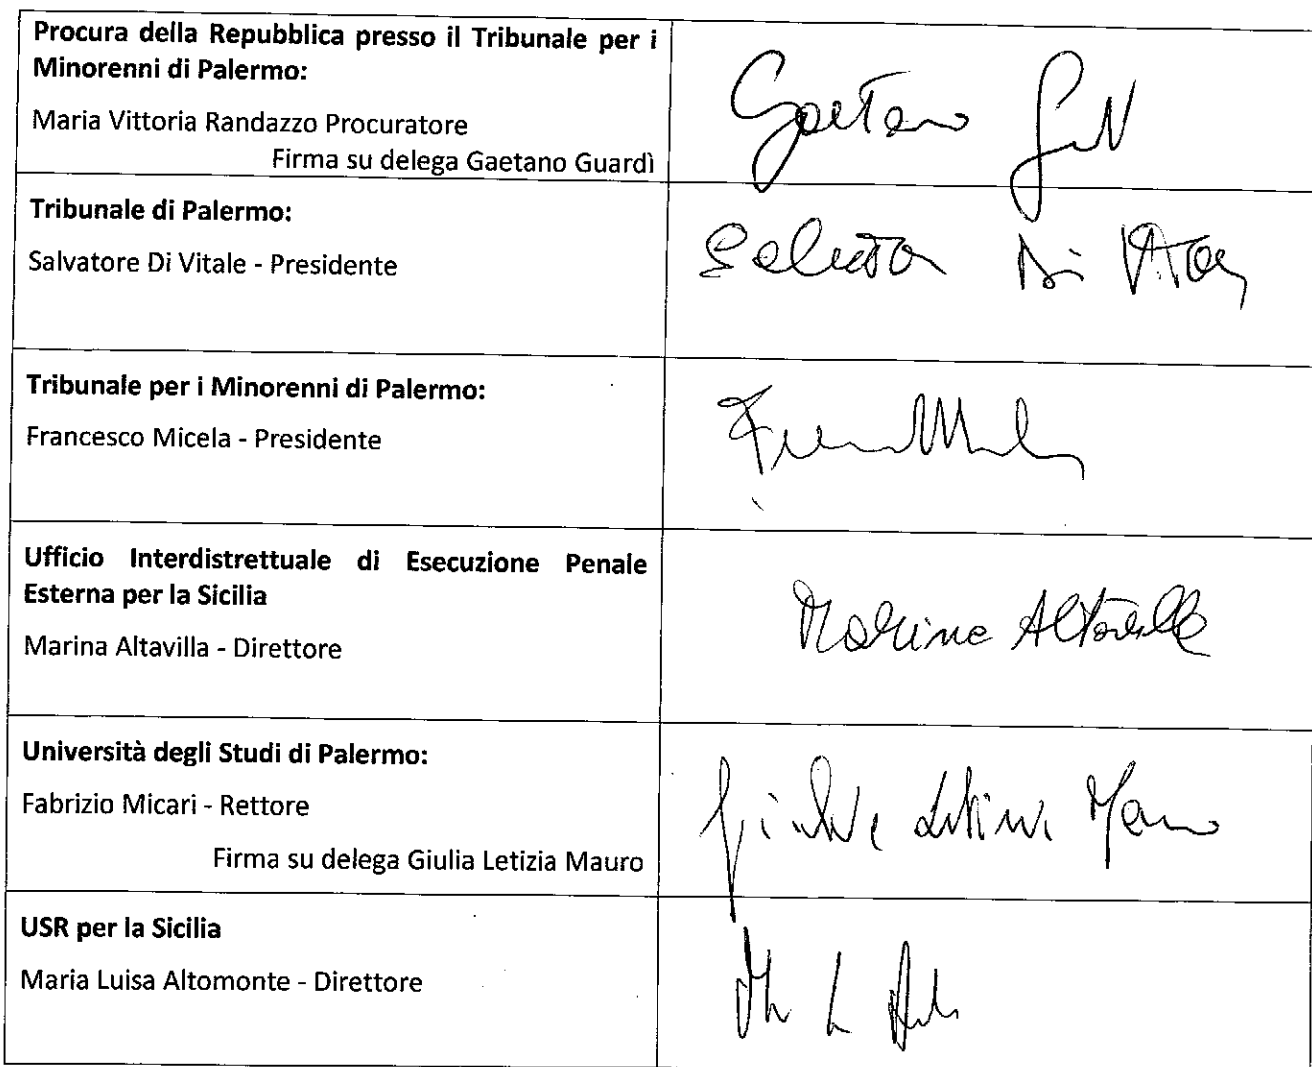 Procura della Repubblica presso il Tribunale per i
Minorenni di Palermo:
Maria Vittoria Randazzo Procuratore
Firma su delega Gaetano Guardì
Gaetano
Tribunale di Palermo:
Salvatore Di Vitale - Presidente
Tribunale per i Minorenni di Palermo:
Francesco Micela - Presidente
Ufficio Interdistrettuale di Esecuzione Penale
Esterna per la Sicilia
Marina Altavilla - Direttore
Marina Altavilla
Università degli Studi di Palermo:
Fabrizio Micari - Rettore
Firma su delega Giulia Letizia Mauro
Giulia Letizia Mauro
USR per la Sicilia
Maria Luisa Altomonte - Direttore